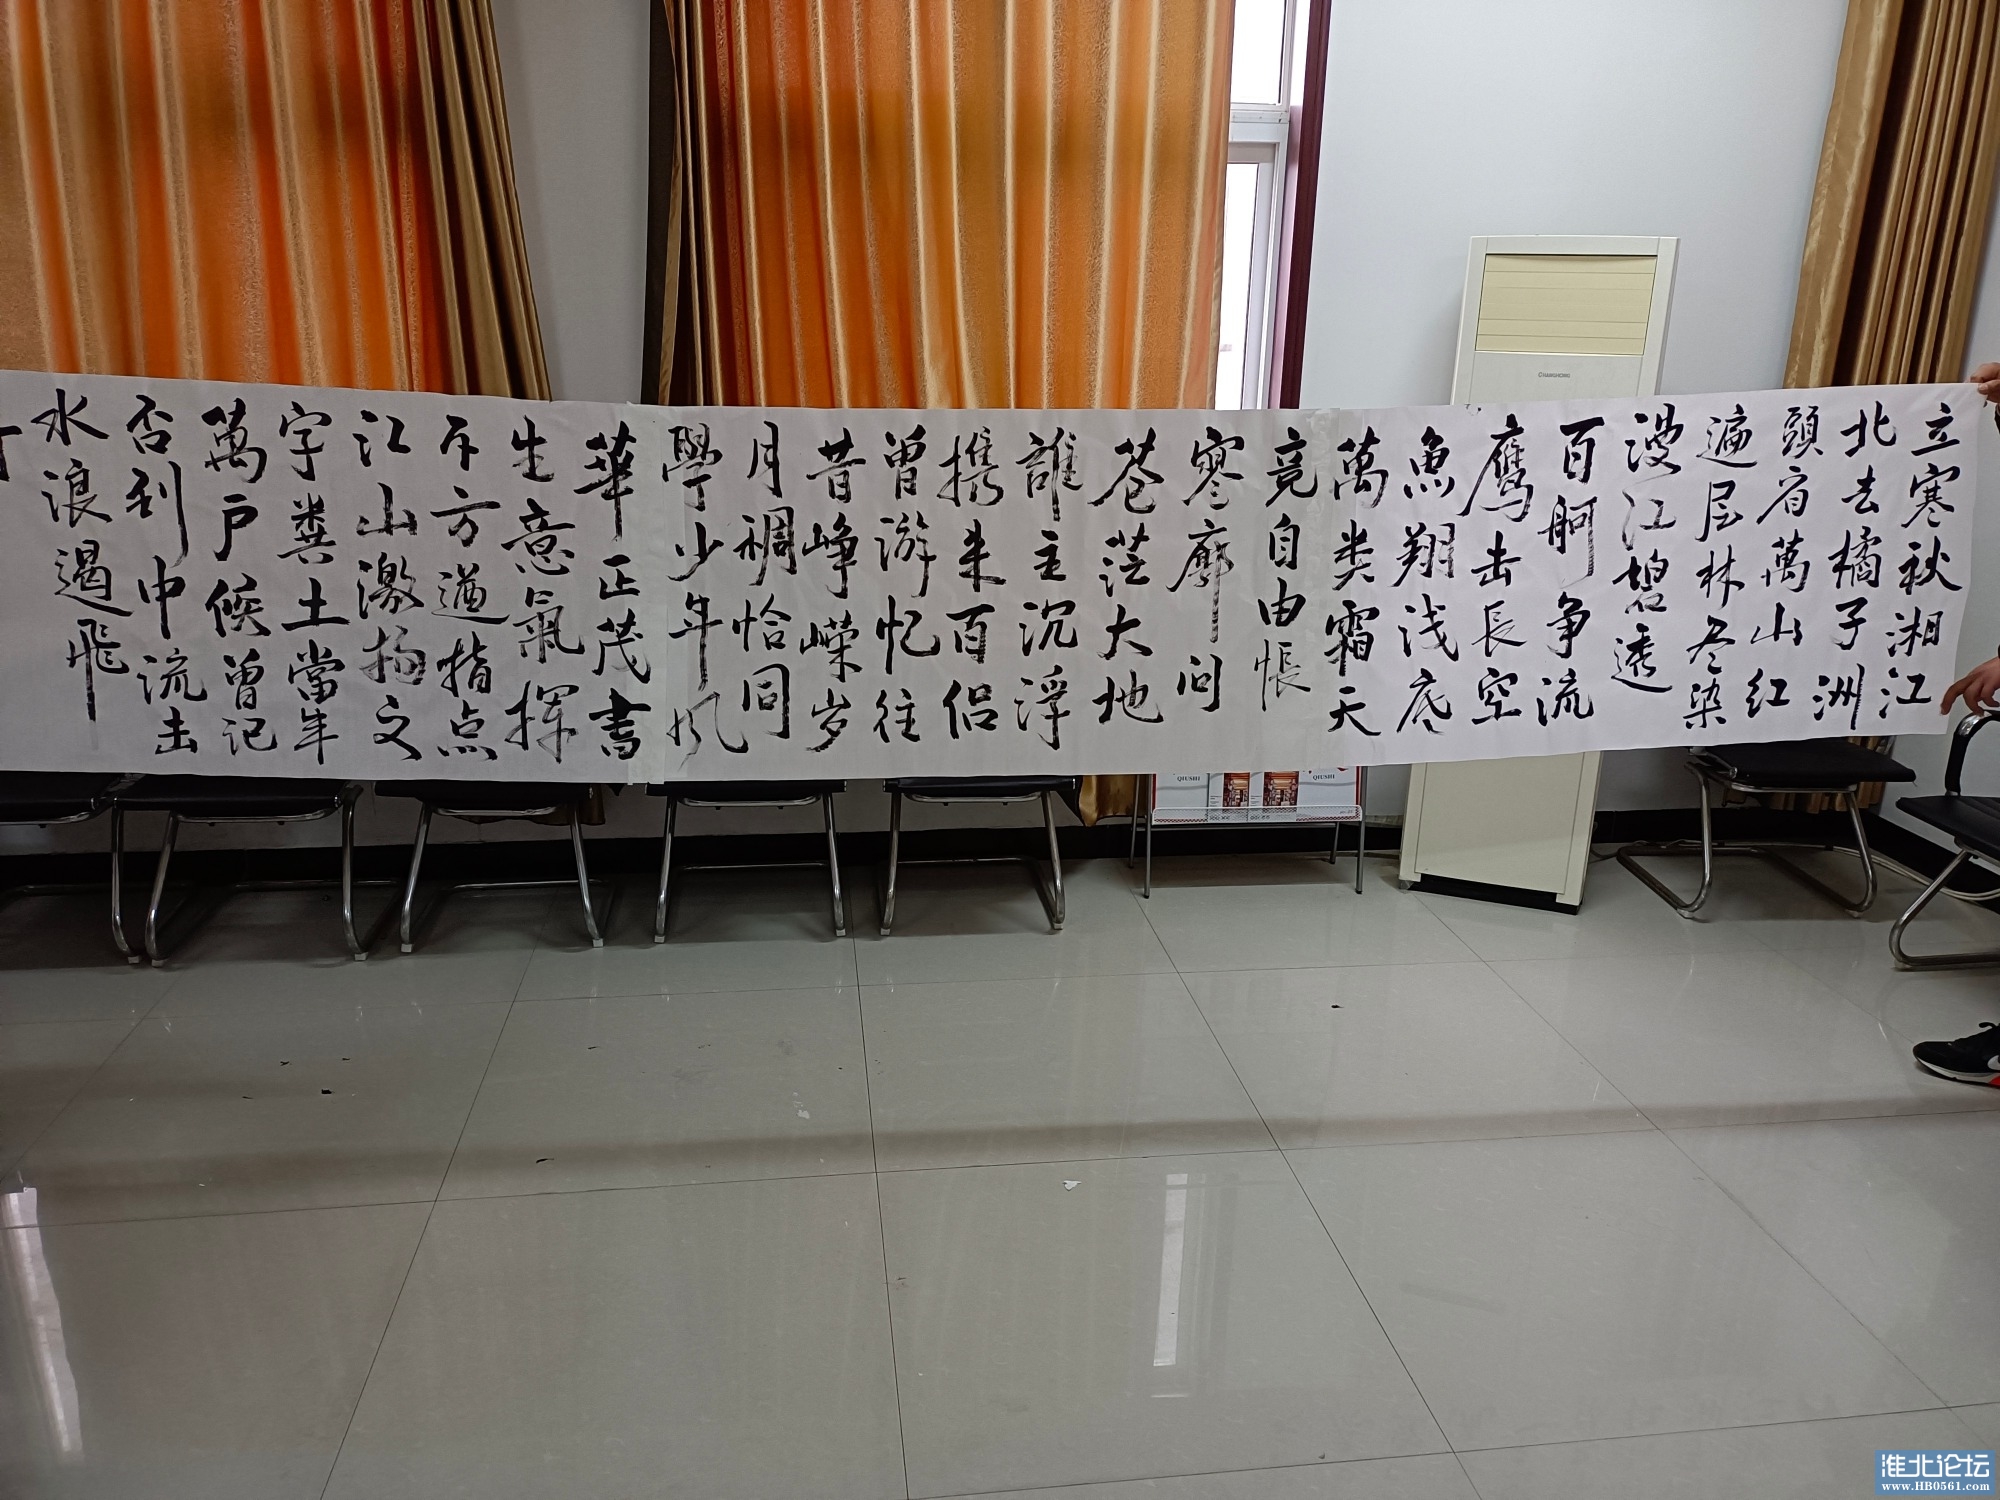 立寒秋湘江
北去橘子洲
頭看萬山红
遍层林尽染
漫江碧透
百舸争流
鹰击長空
魚翔浅底
萬类霜天
竞自由怅
寥廓问
苍茫大地
誰主沉浮
携来百侣
曾游忆往
昔峥嵘岁
月稠恰同
學少年风
華正茂書
生意氣挥
斥方遒指点
江山激扬文
字粪土當年
萬户候曾记
否到中流击
水浪遏飛
CHANGHONG
QIUSHI
QIUSHI
淮北论坛
www.HB0561.com